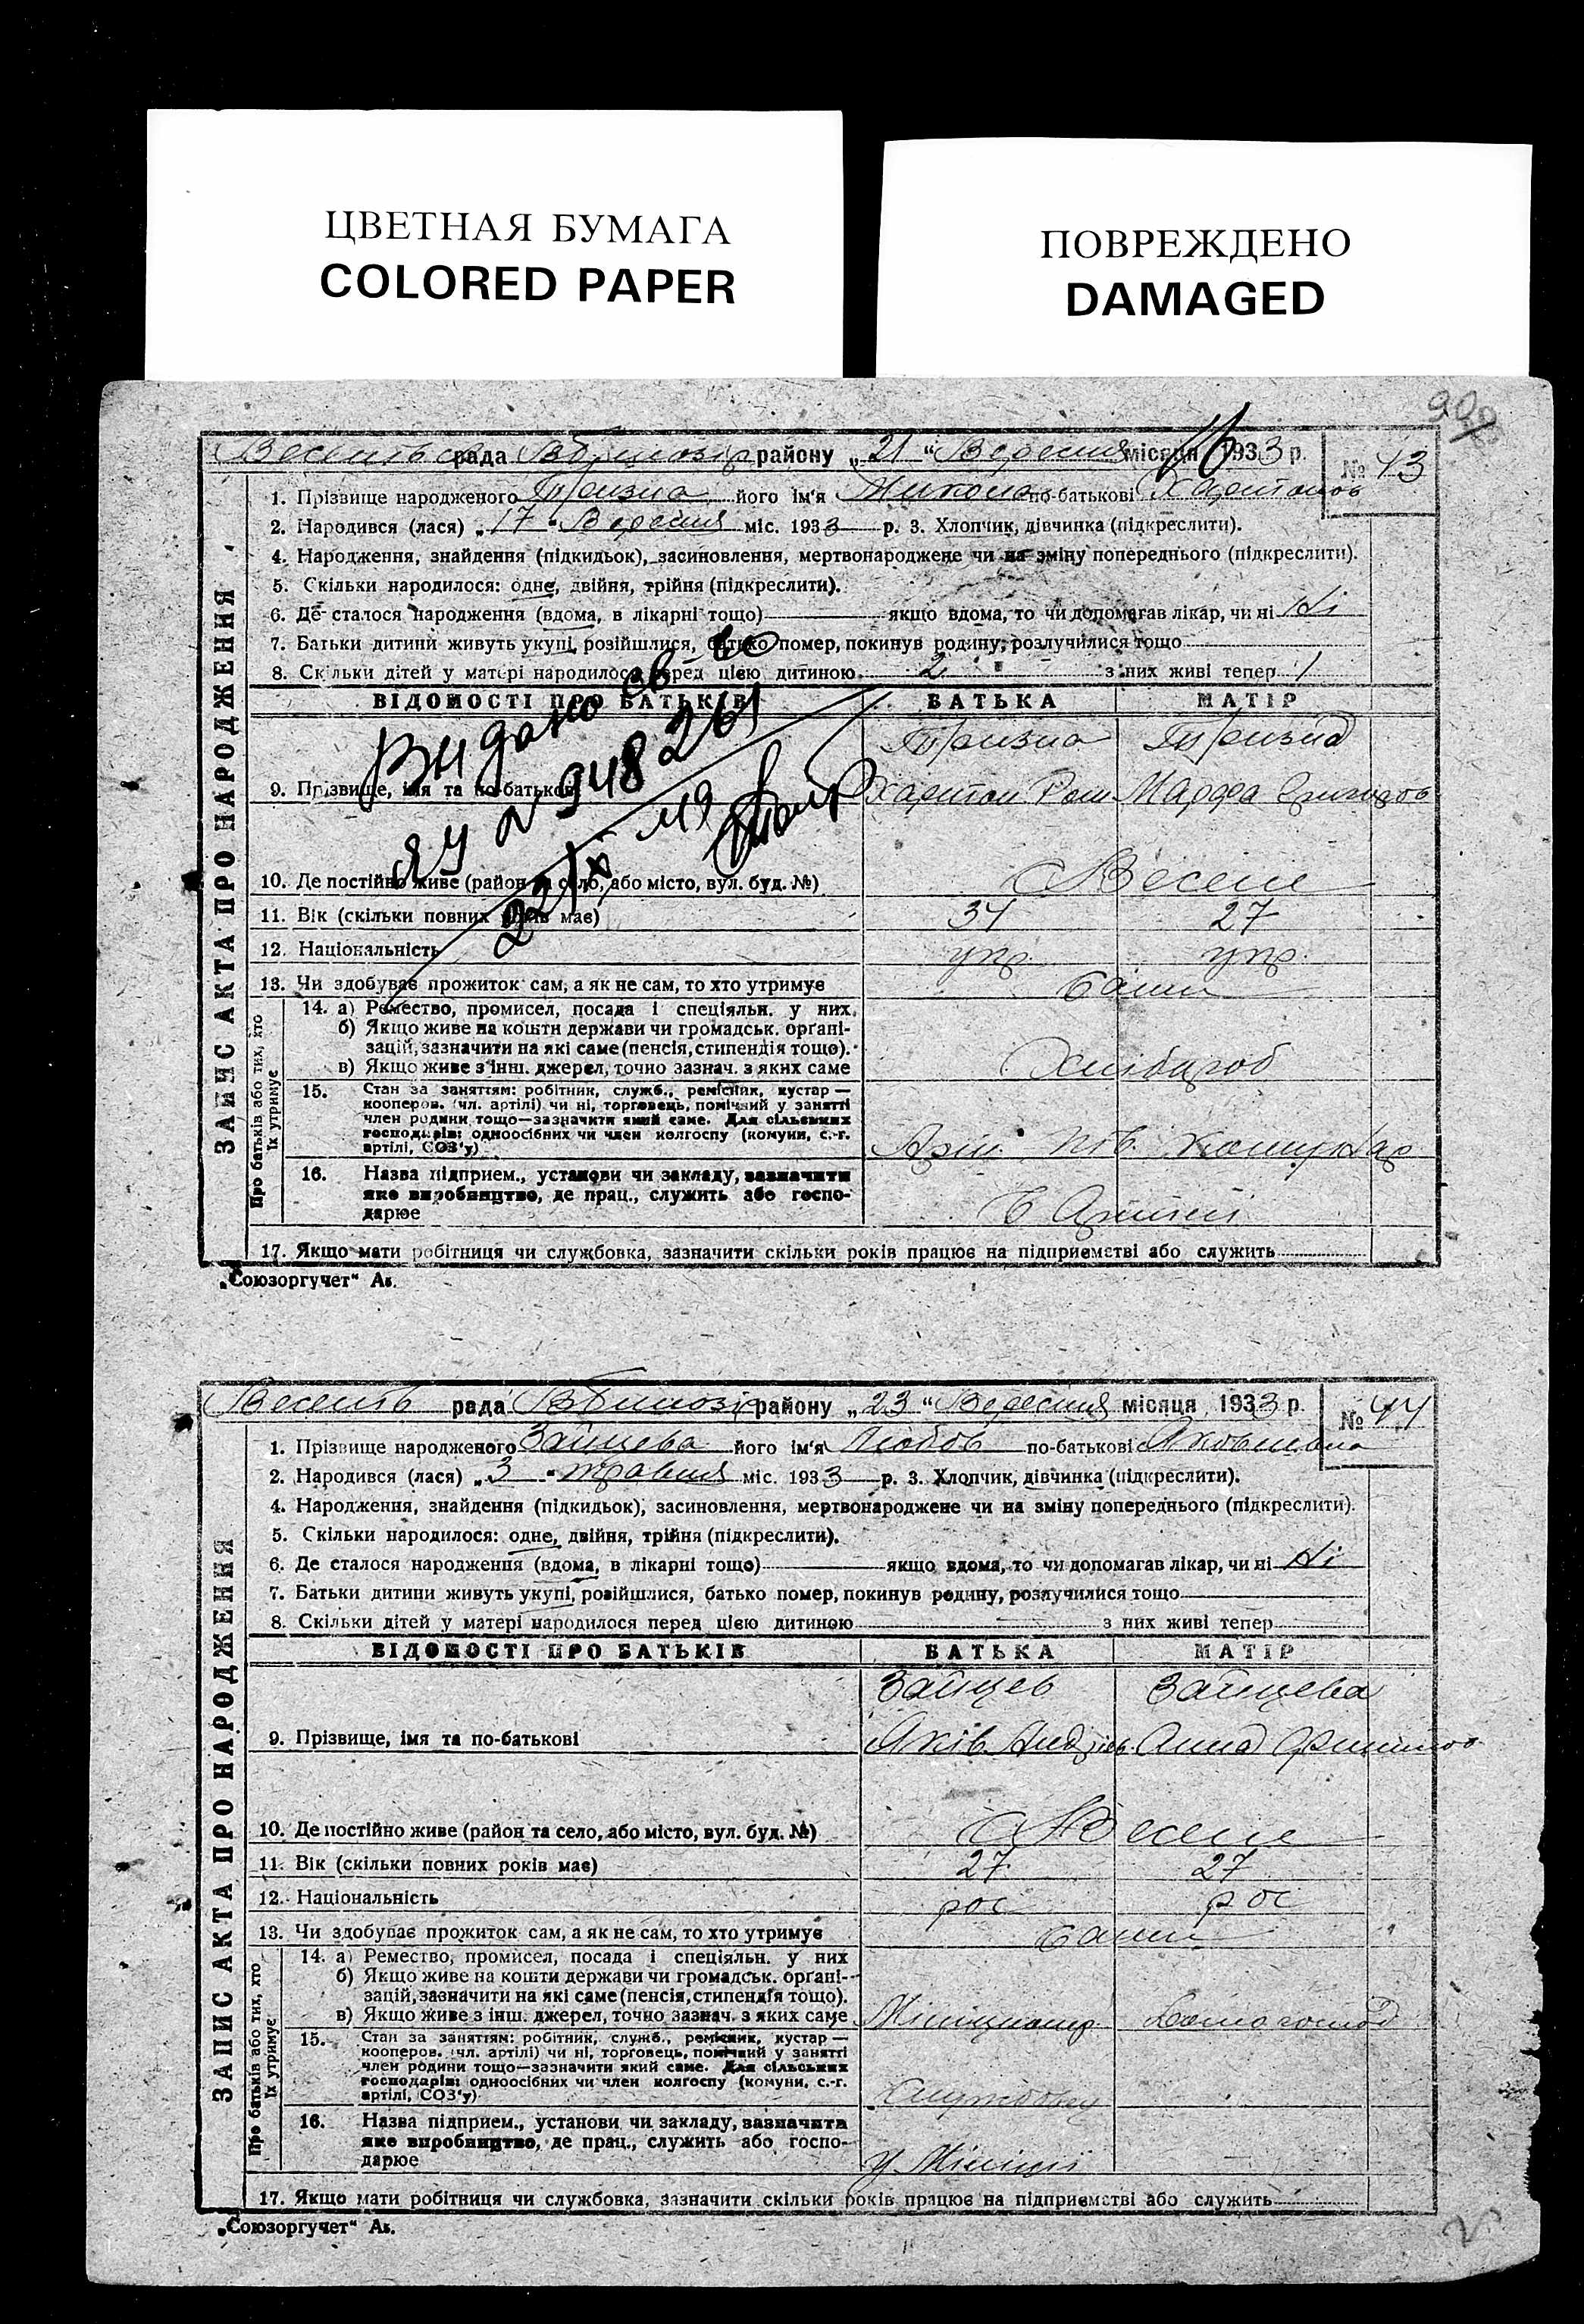 ЦВЕТНАЯ БУМАГА
COLORED PAPER
ПОВРЕЖДЕНО
DAMAGED
рада району „21“ Вересня місяця 1933 р. № 43
ЗАПИС АКТА ПРО НАРОДЖЕННЯ
1. Прізвище народженого Тризна його ім'я Микола по-батькові Харитонов
2. Народився (лася) „17“ Вересня міс. 1933 р. 3. Хлопчик, дівчинка (підкреслити).
4. Народження, знайдення (підкидьок), засиновлення, мертвонароджене чи на зміну попереднього (підкреслити).
5. Скільки народилося: одне, двійня, трійня (підкреслити).
6. Де сталося народження (вдома, в лікарні тощо) якщо вдома, то чи допомагав лікар, чи ні Ні
7. Батьки дитини живуть укупі, розійшлися, батько помер, покинув родину, розлучилися тощо
8. Скільки дітей у матері народилося перед цією дитиною 2 з них живі тепер 1
ВІДОМОСТІ ПРО БАТЬКІВ БАТЬКА МАТІР
Тризна Тризна
9. Прізвище, імя та по-батькові Харитон Ром Марфа
Видано св-во
ЯУ № 948261
10. Де постійно живе (район та село, або місто, вул. буд. №) с Веселе
11. Вік (скільки повних років має) 34 27
12. Національність укр укр.
13. Чи здобуває прожиток сам, а як не сам, то хто утримує сами
Про батьків або тих, хто їх утримує
14. а) Ремество, промисел, посада і спеціяльн. у них.
б) Якщо живе на кошти держави чи громадськ. орґані-
зацій, зазначити на які саме (пенсія, стипендія тощо).
в) Якщо живе з інш. джерел, точно зазнач. з яких саме Хлібороб
15. Стан за заняттям: робітник, служб., ремісник, кустар —
кооперов. (чл. артілі) чи ні, торговець, помічний у занятті
член родини тощо—зазначити який саме. Для сільських
господарів: одноосібних чи член колгоспу (комуни, с.-г.
артілі, СОЗ'у)
16. Назва підприєм., установи чи закладу, зазначити
яке виробництво, де прац., служить або госпо-
дарює В Артілі
17. Якщо мати робітниця чи службовка, зазначити скільки років працює на підприємстві або служить
„Союзоргучет“ Аз.
рада району „23“ Вересня місяця 1933 р. № 44
ЗАПИС АКТА ПРО НАРОДЖЕННЯ
1. Прізвище народженого Зайцева його ім'я Любов по-батькові Яковлевна
2. Народився (лася) „3“ травня міс. 1933 р. 3. Хлопчик, дівчинка (підкреслити).
4. Народження, знайдення (підкидьок), засиновлення, мертвонароджене чи на зміну попереднього (підкреслити).
5. Скільки народилося: одне, двійня, трійня (підкреслити).
6. Де сталося народження (вдома, в лікарні тощо) якщо вдома, то чи допомагав лікар, чи ні Ні
7. Батьки дитини живуть укупі, розійшлися, батько помер, покинув родину, розлучилися тощо
8. Скільки дітей у матері народилося перед цією дитиною з них живі тепер
ВІДОМОСТІ ПРО БАТЬКІВ БАТЬКА МАТІР
Зайцев Зайцева
9. Прізвище, імя та по-батькові Яків Андрієв. Анна
10. Де постійно живе (район та село, або місто, вул. буд. №) с Веселе
11. Вік (скільки повних років має) 27 27
12. Національність рос рос
13. Чи здобуває прожиток сам, а як не сам, то хто утримує сами
Про батьків або тих, хто їх утримує
14. а) Ремество, промисел, посада і спеціяльн. у них
б) Якщо живе на кошти держави чи громадськ. орґані-
зацій, зазначити на які саме (пенсія, стипендія тощо).
в) Якщо живе з інш. джерел, точно зазнач. з яких саме Міліціонер Домогоспод
15. Стан за заняттям: робітник, служб., ремісник, кустар —
кооперов. (чл. артілі) чи ні, торговець, помічний у занятті
член родини тощо—зазначити який саме. Для сільських
господарів: одноосібних чи член колгоспу (комуни, с.-г.
артілі, СОЗ'у)
16. Назва підприєм., установи чи закладу, зазначити
яке виробництво, де прац., служить або госпо-
дарює у Міліції
17. Якщо мати робітниця чи службовка, зазначити скільки років працює на підприємстві або служить
„Союзоргучет“ Аз.